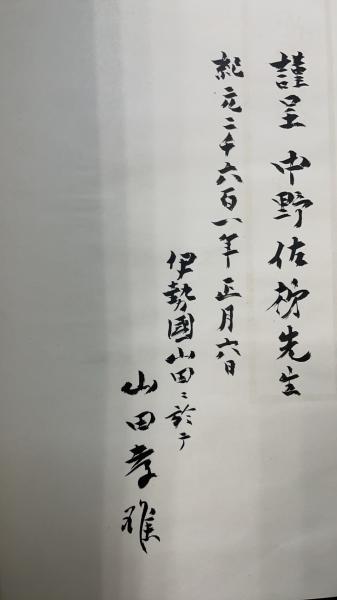 謹呈 中野佐柳先生
紀元二千六百一年正月六日
伊勢國山田ニ於テ
山田孝雄